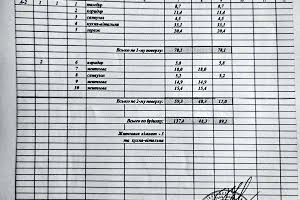 А-2 1 1 1 тамбур 8,7 8,7
2 коридор 11,4 11,4
3 санвузол 4,5 4,5
4 кухня-вітальня
5 гараж 20,4 20,4
Всього по 1-му поверху: 78,1 78,1
2 6 коридор 5,8 5,8
7 житлова 18,0 18,0
8 санвузол 5,2 5,2
9 житлова 14,9 14,9
10 житлова 15,4 15,4
Всього по 2-му поверху: 59,3 48,3 11,0
Всього по будинку: 137,4 48,3 89,1
Житлових кімнат - 3
та кухня-вітальня